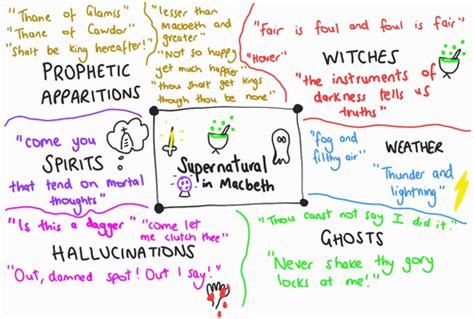 "Thane of Glamis"
"Thane of Cawdor"
"shalt be king hereafter!"
PROPHETIC
APPARITIONS
"lesser than
Macbeth and
greater"
"Not so happy
yet much happier"
"thou shalt get kings
though thou be none"
"Fair is foul and foul is fair"
"Hover"
WITCHES
"the instruments of
darkness tells us
truths"
"come you
SPIRITS
that tend on mortal
thoughts"
Supernatural
in Macbeth
WEATHER
"fog and
filthy air"
"Thunder and
lightning"
"Is this a dagger"
"come let
me clutch thee"
HALLUCINATIONS
"Out, damned spot! Out I say!"
"Thou canst not say I did it."
GHOSTS
"Never shake thy gory
locks at me!"